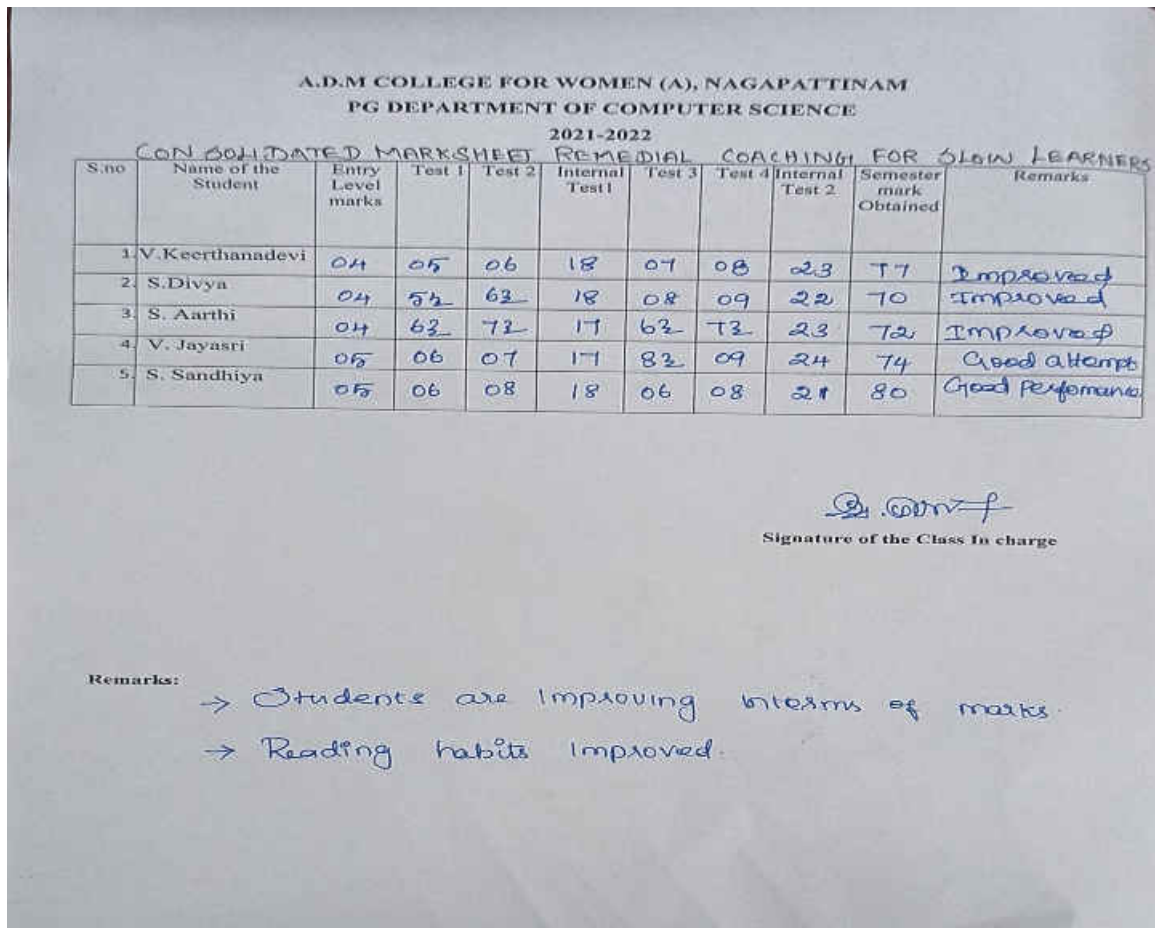 A.D.M COLLEGE FOR WOMEN (A), NAGAPATTINAM
PG DEPARTMENT OF COMPUTER SCIENCE
2021-2022
CONSOLIDATED MARKSHEET REMEDIAL COACHING FOR SLOW LEARNERS
S.no Name of the Student Entry Level marks Test 1 Test 2 Internal Test1 Test 3 Test 4 Internal Test 2 Semester mark Obtained Remarks
1. V.Keerthanadevi 04 05 06 18 07 08 23 77 Improved
2. S.Divya 04 5½ 6½ 18 08 09 22 70 Improved
3. S. Aarthi 04 6½ 7½ 17 6½ 7½ 23 72 Improved
4. V. Jayasri 05 06 07 17 8½ 09 24 74 Good attempt
5. S. Sandhiya 05 06 08 18 06 08 21 80 Good Perfomance
Signature of the Class In charge
Remarks:
→ Students are Improving interms of marks.
→ Reading habits Improved.